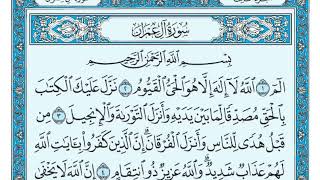 سُورَةُ آلِ عِمْرَانَ
بِسْمِ اللَّهِ الرَّحْمَٰنِ الرَّحِيمِ
الٓمٓ ١ اللَّهُ لَآ إِلَٰهَ إِلَّا هُوَ الْحَيُّ الْقَيُّومُ ٢ نَزَّلَ عَلَيْكَ الْكِتَٰبَ
بِالْحَقِّ مُصَدِّقًا لِّمَا بَيْنَ يَدَيْهِ وَأَنزَلَ التَّوْرَىٰةَ وَالْإِنجِيلَ ٣ مِن
قَبْلُ هُدًى لِّلنَّاسِ وَأَنزَلَ الْفُرْقَانَ إِنَّ الَّذِينَ كَفَرُوا بِـَٔايَٰتِ اللَّهِ
لَهُمْ عَذَابٌ شَدِيدٌ وَاللَّهُ عَزِيزٌ ذُو انتِقَامٍ ٤ إِنَّ اللَّهَ لَا يَخْفَىٰ